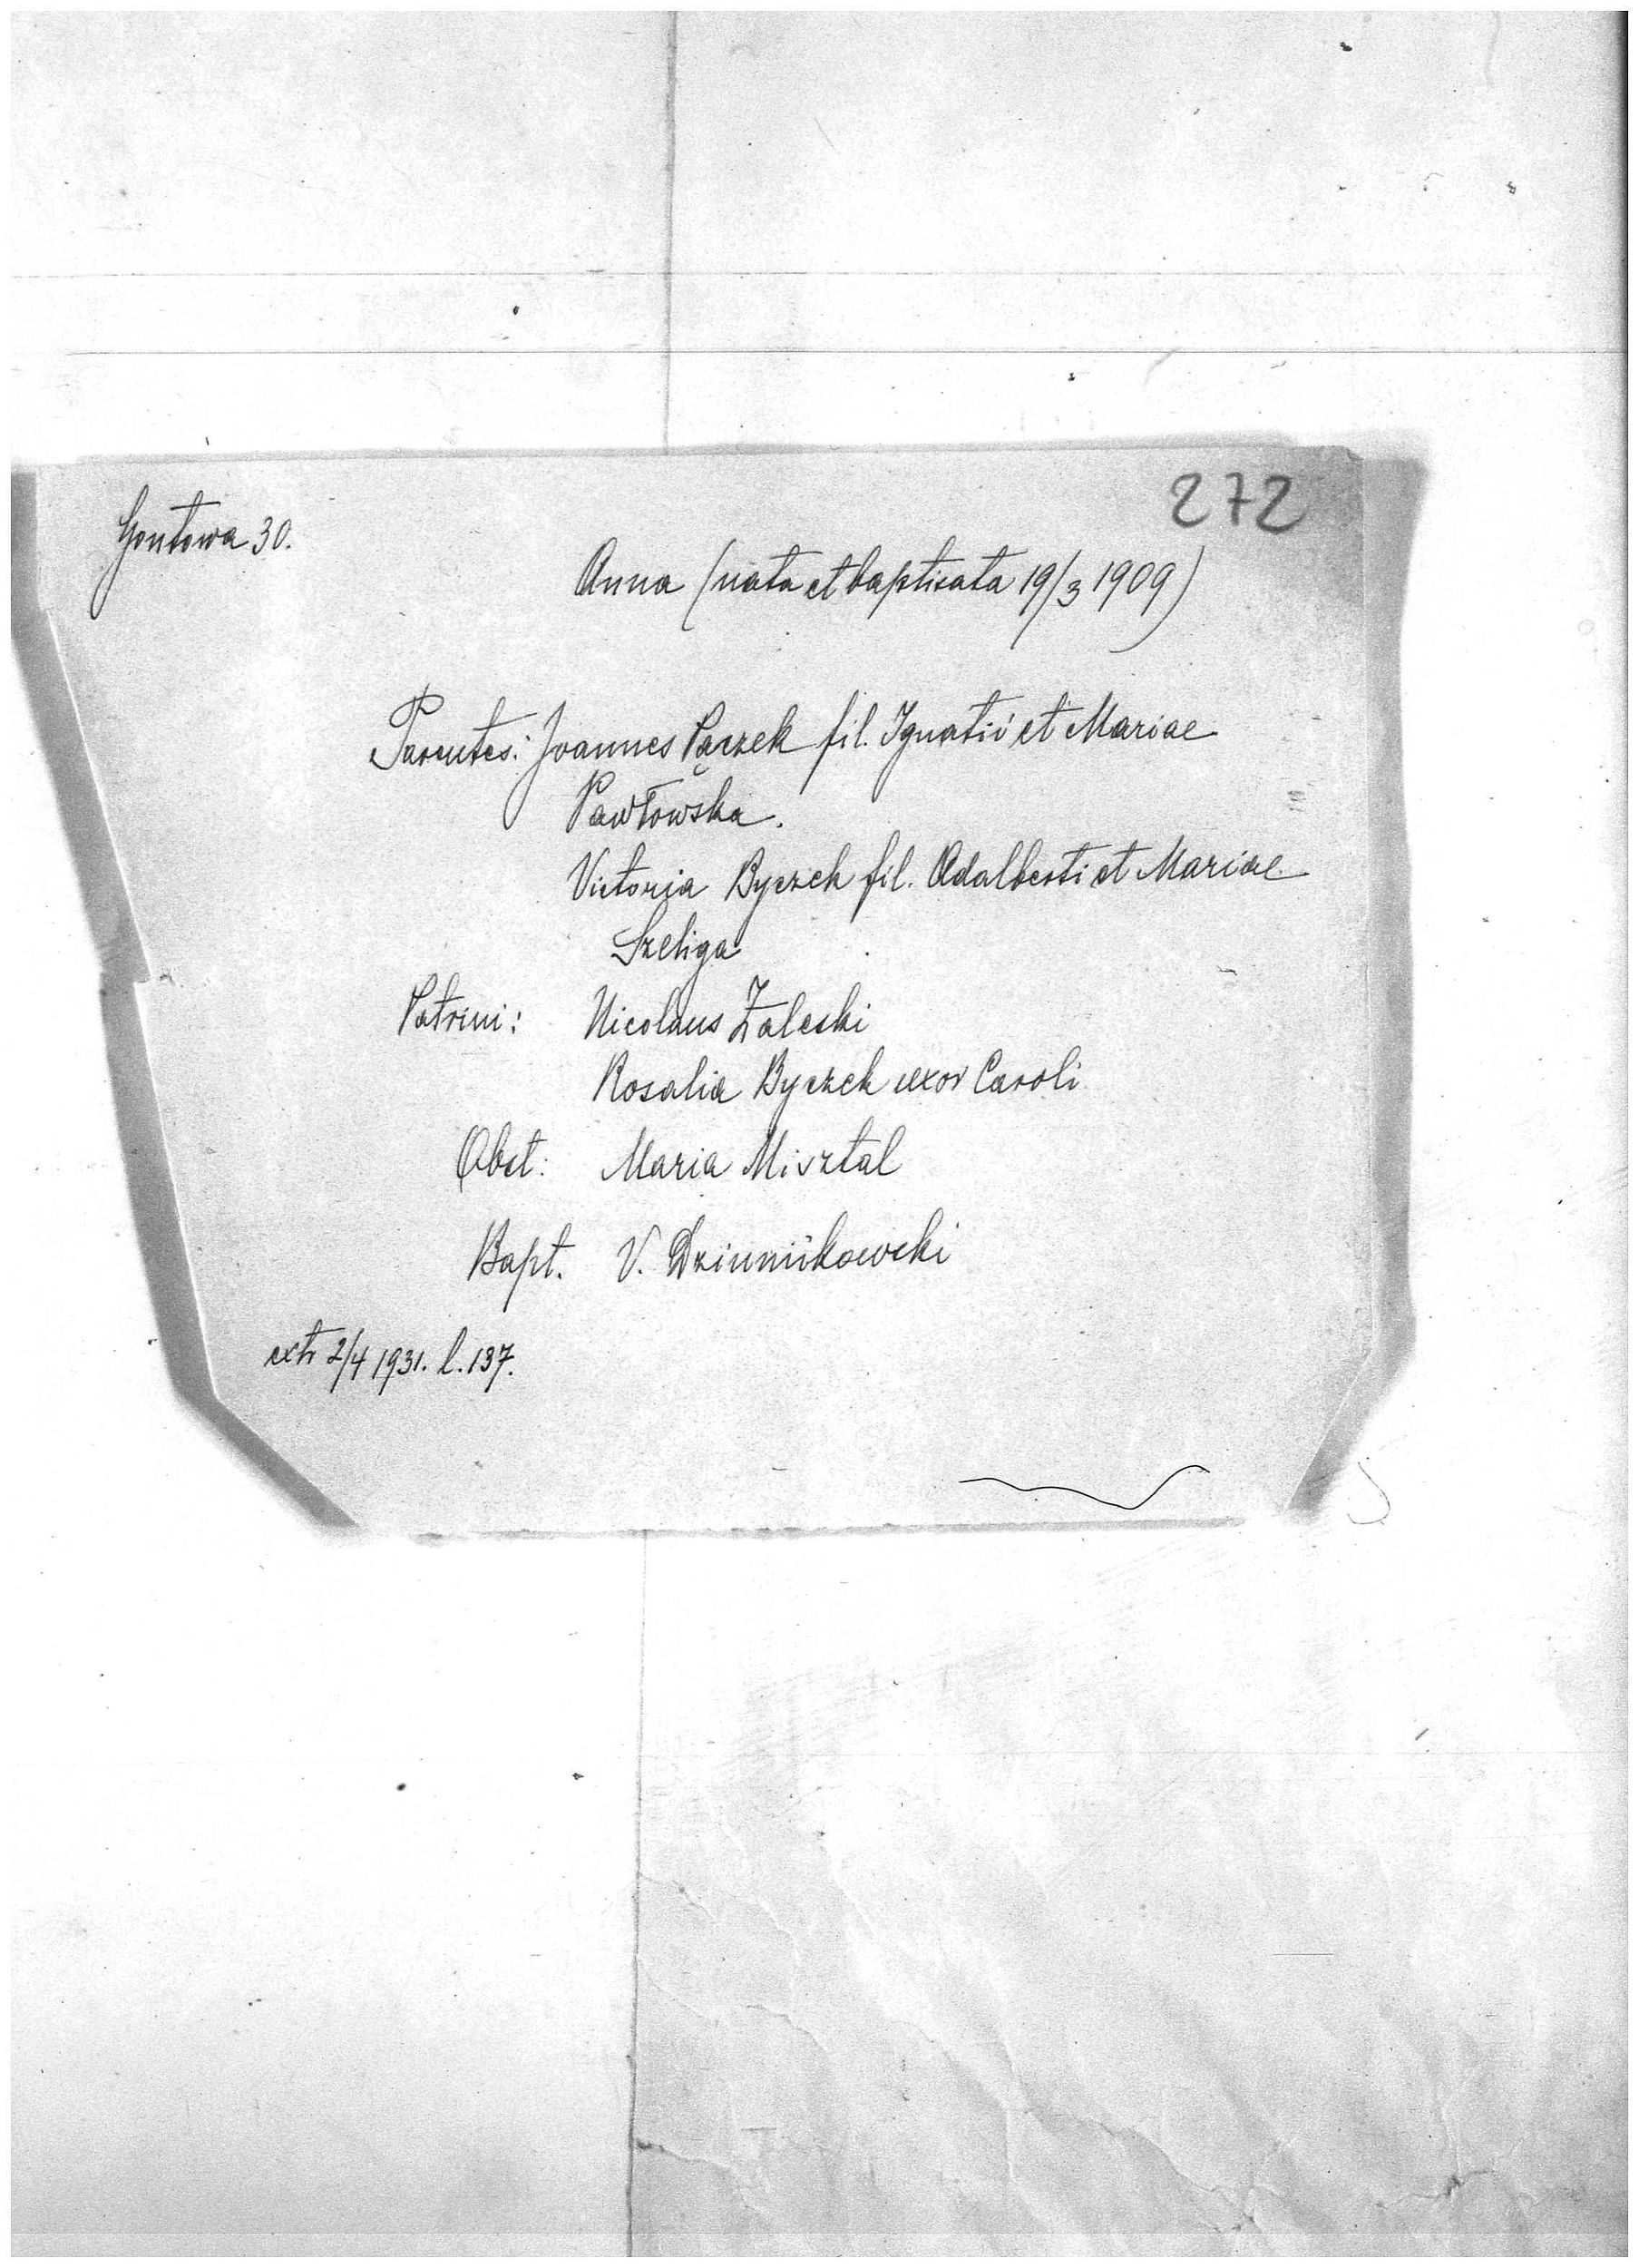 272
Gontowa 30.
Anna (nata et baptisata 19/3 1909)
Parentes: Joannes Pączek fil. Ignatii et Mariae
Pawłowska.
Victoria Byczek fil. Adalberti et Mariae
Szeliga
Patrini: Nicolaus Zaleski
Rosalia Byczek uxor Caroli
Obst: Maria Misztal
Bapt. V. Dziunikowski
extr 2/4 1931. l. 137.